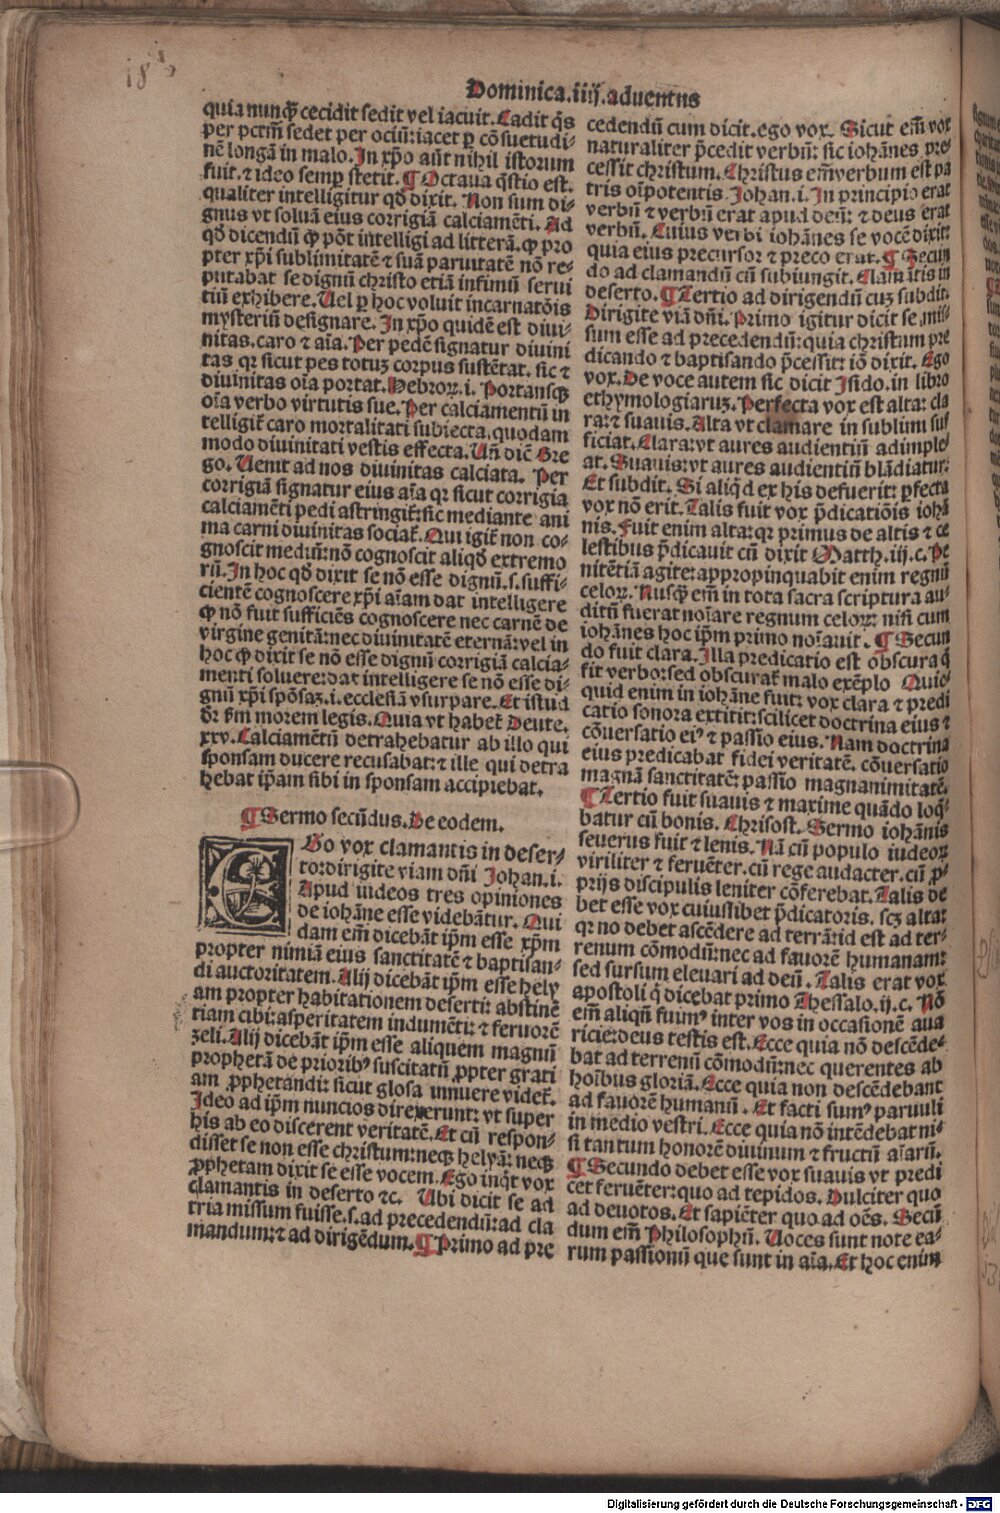 18
Dominica.iiij.aduentus
quia nunq̃ cecidit sedit vel iacuit. Cadit q̄s
per pctm̄ sedet per ociū: iacet ꝑ cōsuetudi-
nē longā in malo. In xp̄o aūt nihil istorum
fuit. ⁊ ideo semꝑ stetit. ¶ Octaua q̄stio est.
qualiter intelligitur qđ dixit. Non sum di-
gnus vt soluā eius corrigiā calciamēti. Ad
qđ dicendū ꝙ pōt intelligi ad litterā. ꝙ pro
pter xp̄i sublimitatē ⁊ suā paruitatē nō re-
putabat se dignū christo etiā infimū serui
tiū exhibere. Uel ꝑ hoc voluit incarnatōis
mysteriū designare. In xp̄o quidē est diui-
nitas. caro ⁊ aīa. Per pedē signatur diuini
tas qr sicut pes totuʒ corpus sustētat. sic ⁊
diuinitas oīa portat. Hebroꝝ. i. Portansqʒ
oīa verbo virtutis sue. Per calciamentū in
telligit̄ caro mortalitati subiecta. quodam
modo diuinitati vestis effecta. Uñ dič Gre
go. Uenit ad nos diuinitas calciata. Per
corrigiā signatur eius aīa qr sicut corrigia
calciamēti pedi astringit̄: sic mediante ani
ma carni diuinitas sociat̄. Qui igit̄ non co-
gnoscit mediū: nō cognoscit aliqđ extremo
rū. In hoc qđ dixit se nō esse dignū. s. suffi-
cientē cognoscere xp̄i aīam dat intelligere
ꝙ nō fuit sufficiēs cognoscere nec carnē de
virgine genitā: nec diuinitatē eternā: vel in
hoc ꝙ dixit se nō esse dignū corrigiā calcia-
menti soluere: dat intelligere se nō esse di-
gnū xp̄i spōsaʒ. i. ecclesiā vsurpare. Et istud
dr̄ fm morem legis. Quia vt habet̄ Deute.
xxv. Calciamētū detrahebatur ab illo qui
sponsam ducere recusabat: ⁊ ille qui detra
hebat ip̄am sibi in sponsam accipiebat.
¶ Sermo secūdus. De eodem.
EGo vox clamantis in deser-
to: dirigite viam dn̄i Johan. i.
Apud iudeos tres opiniones
de iohāne esse videbātur. Qui
dam em̄ dicebāt ip̄m esse xp̄m
propter nimiā eius sanctitatē ⁊ baptisan-
di auctoritatem. Alij dicebāt ip̄m esse hely
am propter habitationem deserti: abstinē
tiam cibi: asperitatem indumēti: ⁊ feruorē
zeli. Alij dicebāt ip̄m esse aliquem magnū
prophetā de prioribꝰ suscitatū ꝓpter grati
am ꝓphetandi: sicut glosa innuere videt̄.
Ideo ad ip̄m nuncios direxerunt: vt super
his ab eo discerent veritatē. Et cū respon-
disset se non esse christum: neqʒ helyā: neqʒ
ꝓphetam dixit se esse vocem. Ego inq̄t vox
clamantis in deserto ⁊c. Ubi dicit se ad
tria missum fuisse. s. ad precedendū: ad cla
mandum: ⁊ ad dirigēdum. ¶ Primo ad pre
cedendū cum dicit. ego vox. Sicut em̄ vox
naturaliter p̄cedit verbū: sic iohānes pre-
cessit christum. Christus em̄ verbum est pa
tris oīpotentis. Johan. i. In principio erat
verbū ⁊ verbū erat apud deū: ⁊ deus erat
verbū. Cuius verbi iohānes se vocē dixit:
quia eius precursor ⁊ preco erat. ¶ Secun
do ad clamandū cū subiungit. Clamātis in
deserto. ¶ Tertio ad dirigendū cuʒ subdit.
Dirigite viā dn̄i. Primo igitur dicit se mis-
sum esse ad precedendū: quia christum pre
dicando ⁊ baptisando p̄cessit: iō dixit. Ego
vox. De voce autem sic dicit Isido. in libro
ethymologiaruʒ. Perfecta vox est alta: cla
ra: ⁊ suauis. Alta vt clamare in sublimi suf
ficiat. Clara: vt aures audientiū adimple-
at. Suauis: vt aures audientiū blādiatur.
Et subdit. Si aliq̄d ex his defuerit: ꝑfecta
vox nō erit. Talis fuit vox p̄dicatiōis iohā
nis. Fuit enim alta: qr primus de altis ⁊ ce
lestibus p̄dicauit cū dixit Matth. iij. c. Pe
nitētiā agite: appropinquabit enim regnū
celoꝝ. Nusq̃ em̄ in tota sacra scriptura au-
ditū fuerat noīare regnum celoꝝ: nisi cum
iohānes hoc ip̄m primo noīauit. ¶ Secun
do fuit clara. Illa predicatio est obscura q̄
fit verbo: sed obscurat̄ malo exēplo Quic-
quid enim in iohāne fuit: vox clara ⁊ predi
catio sonora extitit: scilicet doctrina eius ⁊
cōuersatio eiꝰ ⁊ passio eius. Nam doctrina
eius predicabat fidei veritatē. cōuersatio
magnā sanctitatē: passio magnanimitatē.
¶ Tertio fuit suauis ⁊ maxime quādo loq̄-
batur cū bonis. Chrisost. Sermo iohānis
seuerus fuit ⁊ lenis. Nā cū populo iudeoꝝ
viriliter ⁊ feruēter. cū rege audacter. cū ꝓ-
prijs discipulis leniter cōferebat. Talis de
bet esse vox cuiuslibet p̄dicatoris. scʒ alta:
qr no debet ascēdere ad terrā: id est ad ter-
renum cōmodū: nec ad fauorē humanam:
sed sursum eleuari ad deū. Talis erat vox
apostoli q̄ dicebat primo Thessalo. ij. c. Nō
em̄ aliqū fuimꝰ inter vos in occasionē aua
ricie: deus testis est. Ecce quia nō descēde-
bat ad terrenū cōmodū: nec querentes ab
hoībus gloriā. Ecce quia non descēdebant
ad fauorē humanū. Et facti sumꝰ paruuli
in medio vestri. Ecce quia nō intēdebat ni-
si tantum honorē diuinum ⁊ fructū aīarū.
¶ Secundo debet esse vox suauis vt predi
cet feruēter: quo ad tepidos. Dulciter quo
ad deuotos. Et sapiēter quo ad oēs. Secū
dum em̄ Philosophū. Uoces sunt note ea-
rum passionū que sunt in aīa. Et hoc enim
Digitalisierung gefördert durch die Deutsche Forschungsgemeinschaft - DFG